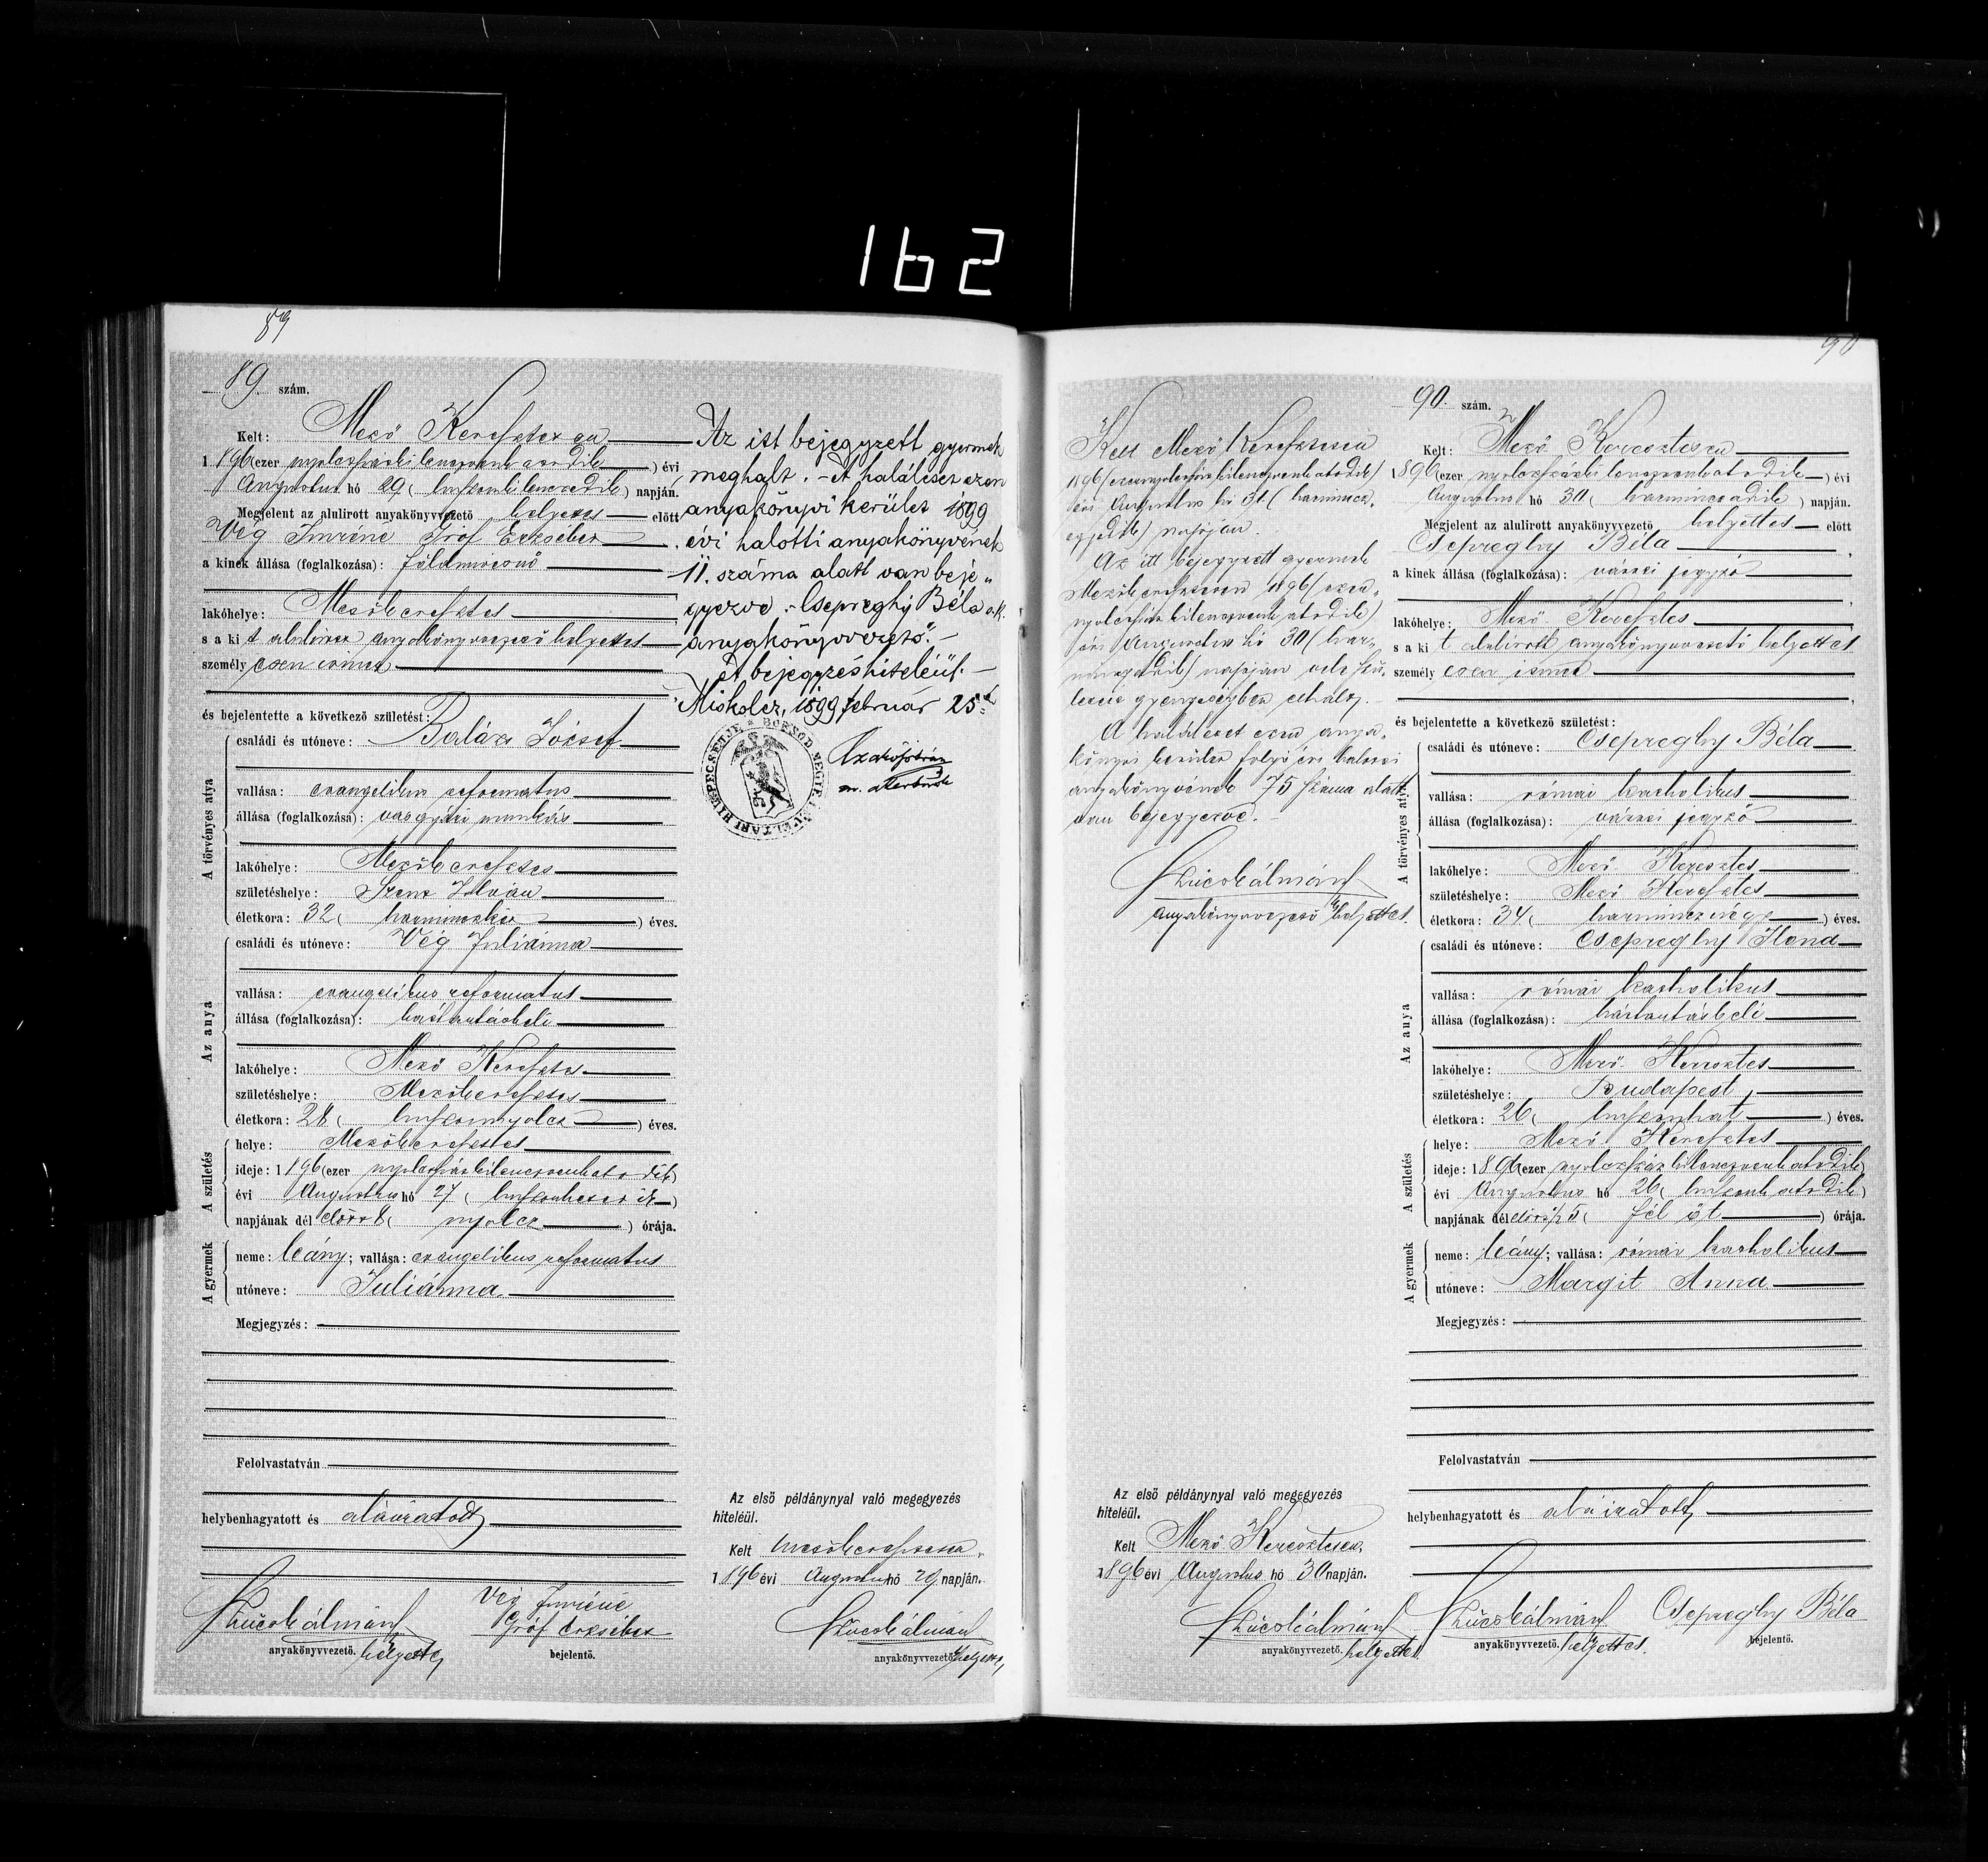 162
89
89. szám.
Kelt: Mező Keresztesen
1896 (ezer nyolczszázkilenczvenhatodik) évi
Augustus hó 29 (huszonkilenczedik) napján.
Megjelent az alulirott anyakönyvvezető helyettes előtt
Vég Imréné Gróf Erzsébet
a kinek állása (foglalkozása): földmivesnő
lakóhelye: Mezőkeresztes
s a kit alulírott anyakönyvvezető helyettes
személyesen ismer
és bejelentette a következő születést:
A törvényes atya
családi és utóneve: Balázs József
vallása: evangelikus reformatus
állása (foglalkozása): vasgyári munkás
lakóhelye: Mezőkeresztes
születéshelye: Szent István
életkora: 32 (harminczkét) éves.
Az anya
családi és utóneve: Vég Juliánna
vallása: evangelikus reformatus
állása (foglalkozása): háztartásbeli
lakóhelye: Mező Keresztes
születéshelye: Mezőkeresztes
életkora: 28 (huszonnyolcz) éves.
A születés
helye: Mezőkeresztes
ideje: 1896 (ezer nyolczszázkilenczvenhatodik)
évi Augustus hó 27 (huszonhetedik)
napjának dél előtt 8 (nyolcz) órája.
A gyermek
neme: leány; vallása: evangelikus reformatus
utóneve: Juliánna
Megjegyzés:
Felolvastatván
helybenhagyatott és aláiratott
Szücs Kálmán
anyakönyvvezető. helyettes
Vég Imréné
Gróf Erzsébet
bejelentő.
Az itt bejegyzett gyermek
meghalt. - A haláleset ezen
anyakönyvi kerület 1899
évi halotti anyakönyvének
11. száma alatt van beje„
gyezve. - Csepreghy Béla s.k.
anyakönyvvezető. -
A bejegyzés hiteléül. -
Miskolcz, 1899 február 25
BORSOD MEGYE LEVÉLTÁRI HIV. PECSÉTJE
Az első példánynyal való megegyezés
hiteléül.
Kelt Mezőkeresztesen,
1896 évi Augustus hó 29 napján.
Szücs Kálmán
anyakönyvvezető helyettes
90
Kelt Mező Keresztesen
1896 (ezernyolczszázkilenczvenhatodik)
évi Augustus hó 31. (harmincz„
egyedik) napján.
Az itt bejegyzett gyermek
Mezőkeresztesen 1896 (ezer„
nyolczszázkilenczvenhatodik)
évi Augustus hó 30 (har„
minczadik) napján vele szü„
letett gyengeségben elhalt. -
A haláleset ezen anya„
könyvi kerület folyó évi halotti
anyakönyvének 75 száma alatt
van bejegyezve. -
Szücs Kálmán
anyakönyvvezető helyettes.
Az első példánynyal való megegyezés
hiteléül.
Kelt Mező Keresztesen,
1896 évi Augustus hó 30 napján.
Szücs Kálmán
anyakönyvvezető. helyettes.
90. szám.
Kelt: Mező Keresztesen
1896 (ezer nyolczszázkilenczvenhatodik) évi
Augustus hó 30 (harminczadik) napján.
Megjelent az alulirott anyakönyvvezető helyettes előtt
Csepreghy Béla
a kinek állása (foglalkozása): városi jegyző
lakóhelye: Mező Keresztes
s a kit alulirott anyakönyvvezető helyettes
személyesen ismer
és bejelentette a következő születést:
A törvényes atya
családi és utóneve: Csepreghy Béla
vallása: római katholikus
állása (foglalkozása): városi jegyző
lakóhelye: Mező Keresztes
születéshelye: Mező Keresztes
életkora: 34 (harmincznégy) éves.
Az anya
családi és utóneve: Csepreghy Ilona
vallása: római katholikus
állása (foglalkozása): háztartásbeli
lakóhelye: Mező Keresztes
születéshelye: Budapest,
életkora: 26 (huszonhat) éves.
A születés
helye: Mező Keresztes
ideje: 1896 (ezer nyolczszázkilenczvenhatodik)
évi Augustus hó 26 (huszonhatodik)
napjának dél előtt ½5 (fél öt) órája.
A gyermek
neme: leány; vallása: római katholikus
utóneve: Margit Anna
Megjegyzés:
Felolvastatván
helybenhagyatott és aláiratott
Szücs Kálmán
anyakönyvvezető. helyettes.
Csepreghy Béla
bejelentő.